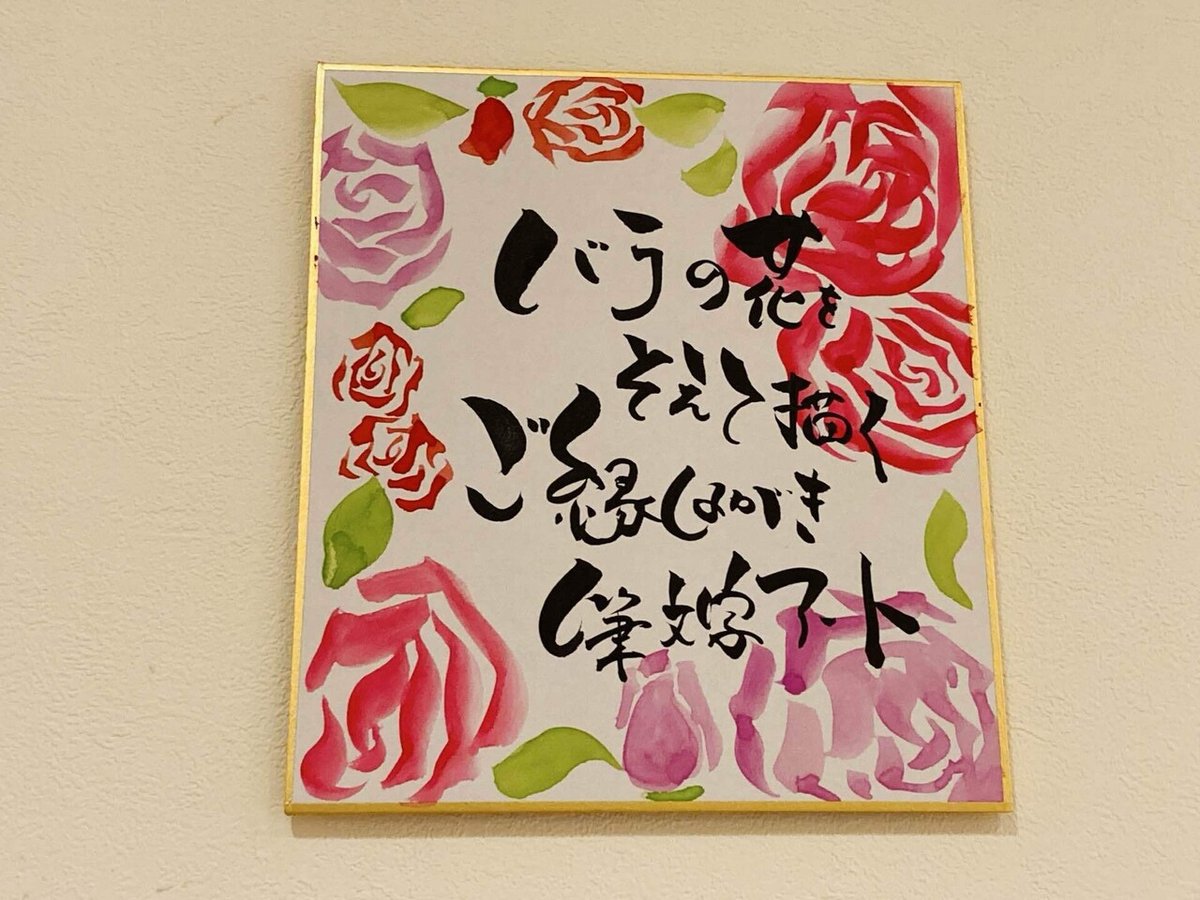 バラの花を
そえて描く
ご縁しあわがき
筆文字アート